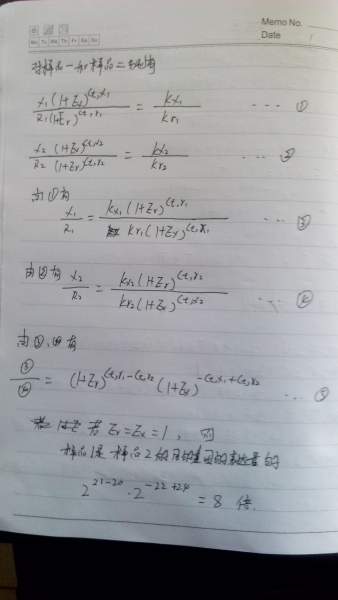 Memo No.
Date
Mo Tu We Th Fr Sa Su
对样品一和样品二分别有
x₁(1+Eₓ)^(Ct,x₁) / R₁(1+Eᵣ)^(Ct,r₁) = kx₁ / kr₁ ... ①
x₂(1+Eₓ)^(Ct,x₂) / R₂(1+Eᵣ)^(Ct,r₂) = kx₂ / kr₂ ... ②
由①有
x₁/R₁ = kx₁(1+Eᵣ)^(Ct,r₁) / kr₁(1+Eₓ)^(Ct,x₁) ... ③
由②有 x₂/R₂ = kx₂(1+Eᵣ)^(Ct,r₂) / kr₂(1+Eₓ)^(Ct,x₂) ... ④
由③,④有
③/④ = (1+Eᵣ)^(Ct,r₁-Ct,r₂) (1+Eₓ)^(-Ct,x₁+Ct,x₂) ... ⑤
若 Eᵣ=Eₓ=1, 则
样品1是样品2的目的基因的表达量的
2^(21-20) · 2^(-22+24) = 8 倍.